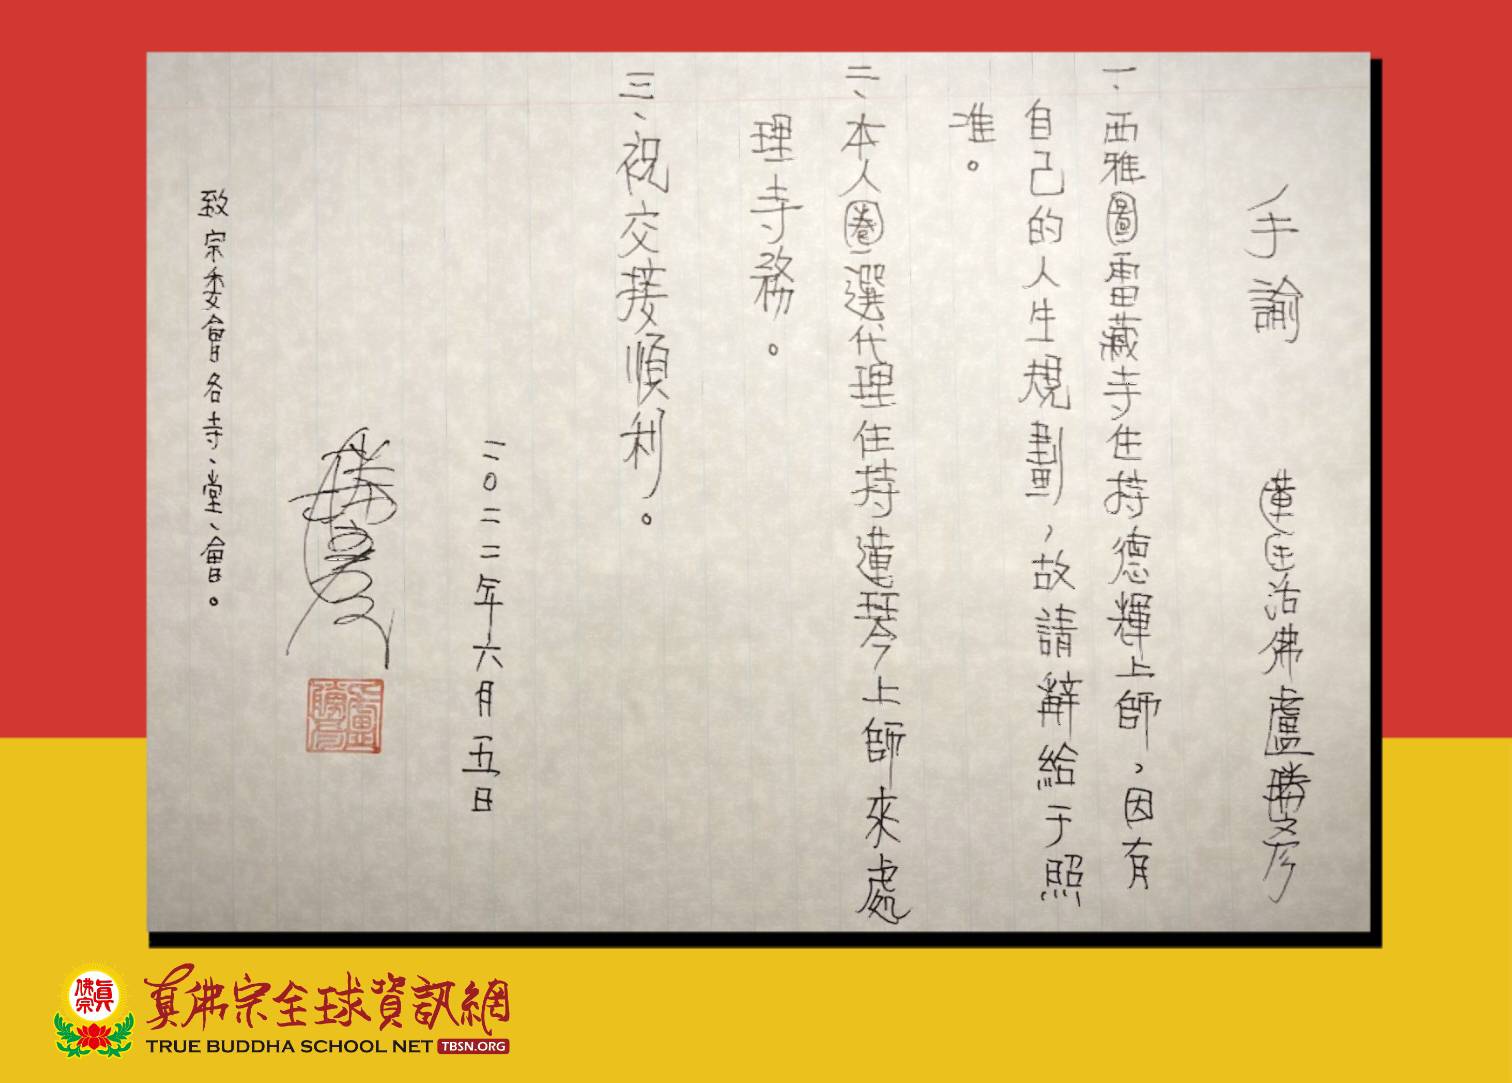 手諭　蓮生活佛盧勝彥
一、西雅圖雷藏寺住持德輝上師，因有
自己的人生規劃，故請辭給于照
准。
二、本人圈選代理住持蓮琴上師來處
理寺務。
三、祝交接順利。
二0二二年六月五日
盧勝彥
致宗委會各寺、堂、會。
真佛宗
真佛宗全球資訊網
TRUE BUDDHA SCHOOL NET TBSN.ORG